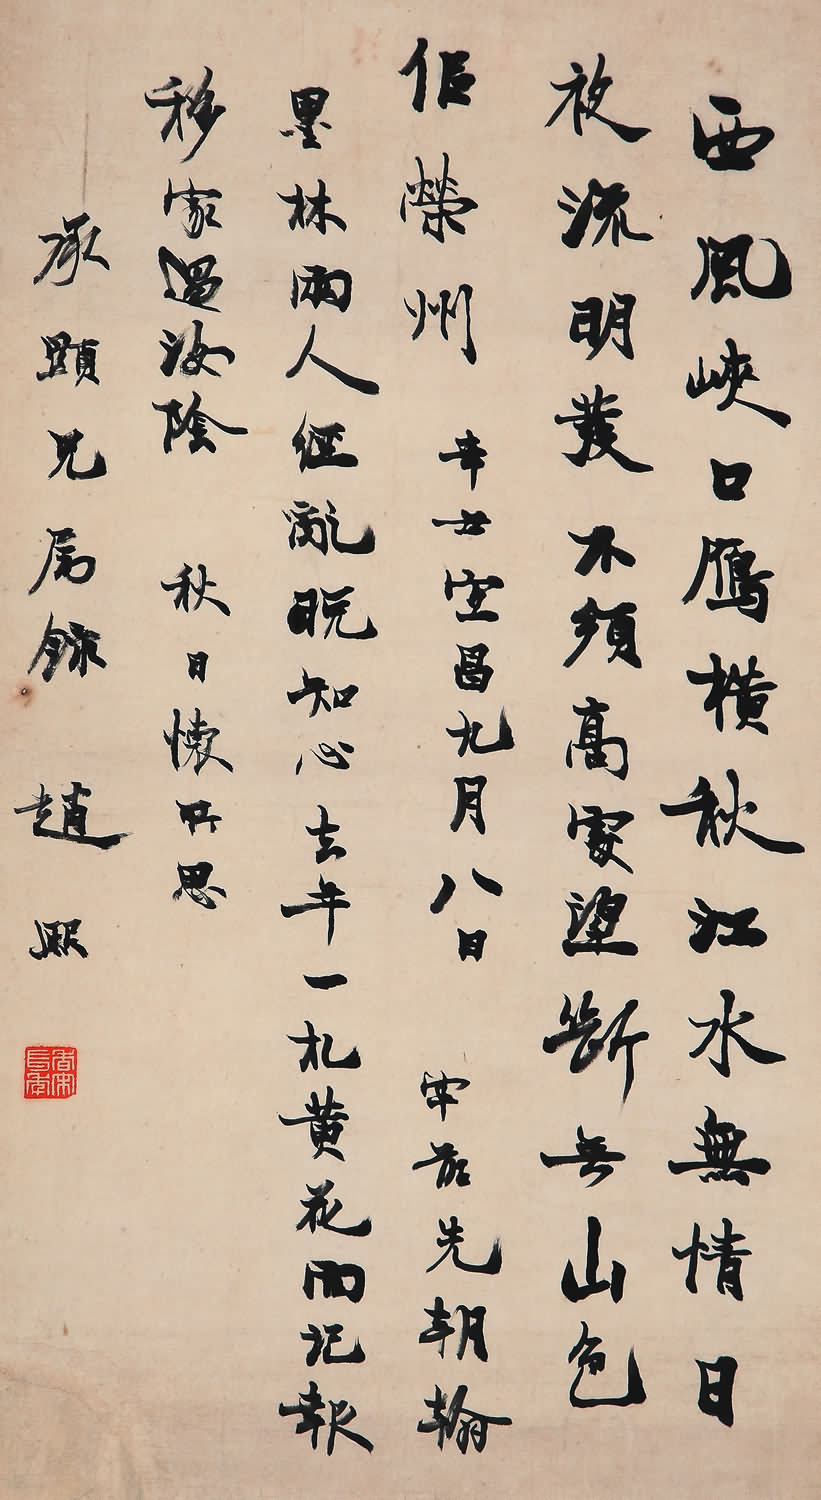 西風峽口鴈橫秋江水無情日
夜流明發不須高處望斷無山色
佀榮州 辛丑宜昌九月八日 牢先朝翰
墨林兩人經亂晚知心去年一札黃花雨記報
移家過汝陰 秋日懷所思
承顯兄屬錄 趙熙
香宋長年